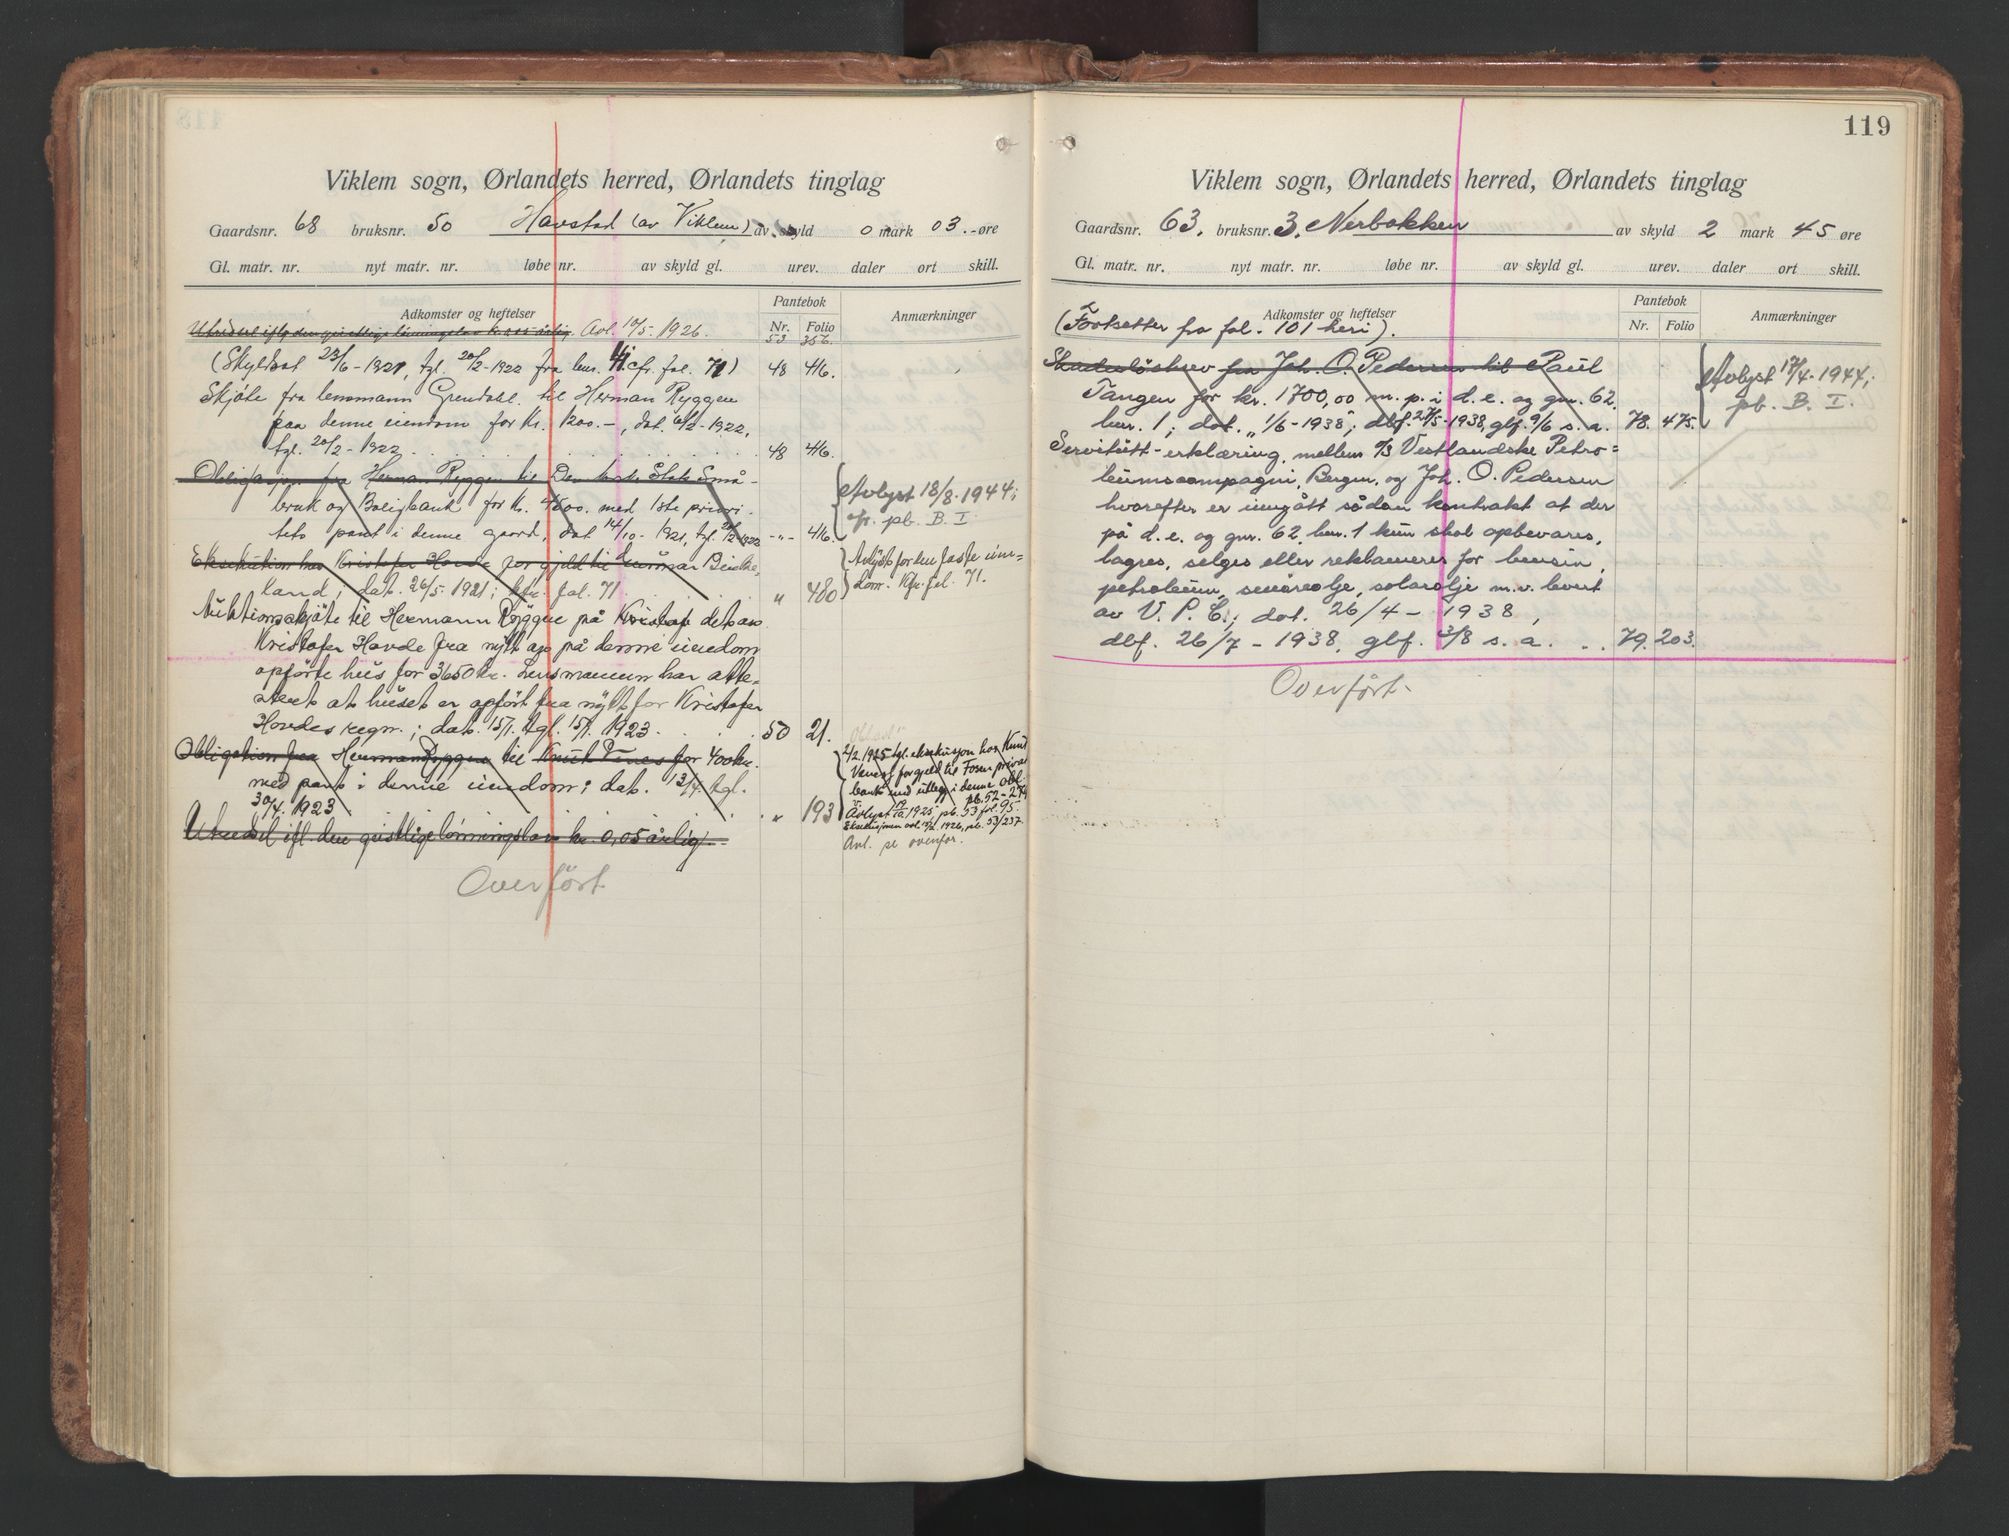 Viklem sogn, Ørlandets herred, Ørlandets tinglag
Gaardsnr. 68 bruksnr. 50 Havstad (av Viklem) av skyld 0 mark 03.- øre
Gl. matr. nr. nyt matr. nr. løbe nr. av skyld gl. urev. daler ort skill.
Adkomster og heftelser Pantebok Nr. Folio Anmærkninger
Utredsel iflg den geistlige lønningslov kr. 0.05 årlig. Avl. 10/5. 1926. 53 356.
(Skyldsat 23/6 - 1921, tgl. 20/2 - 1922 fra brns. 41. cfr. fol. 71) 48 416.
Skjøte fra lensmann Grendahl til Herman Ryggen
paa denne eiendom for Kr. 1200.-, dat. 6/2 - 1922,
tgl. 20/2 - 1922 48 416.
Obligasjon fra Herman Ryggen til Den norske Stats Små-
bruk og Boligbank for Kr. 4500. med 1ste priori-
tets pant i denne gaard, dat 14/10 - 1921, tgl. 20/2 1922 -"- 416.
{Avlyst 18/8. 1944;
cfr. pb. B. I.
Eksekution hos Kristofer Hovde for gjeld til Gunnar
land; dat. 26/5. 1921; kfr. fol. 71 " 480
{Avlyst for den faste eien-
dom. Kfr. fol. 71.
Auktionsskjøte til Hermann Ryggen på Kristofe det av
Kristofer Hovde fra nytt av på denne eiendom
opførte hus for 3650 kr. Lensmannen har atte-
stert at huset er opført fra nytt for Kristofer
Hovdes regn.; dat. 15/1. tgl. 15/1. 1923. 50 21.
Obligation fra Herman Ryggen til Knut Venes for 400 kr.
med pant i denne eiendom; dat. 13/4. tgl.
30/4. 1923 " 193
2/2. 1925 tgl. eksekusjon hos Knut
Venes for gjeld til Fosen privat
bank med utlegg i denne obl.
pb. 52 - 274
Avlyst 1925, pb. 53 fol. 95.
Eksekusjonen avl. 1926, pb. 53/237
Utredsel ifl. den geistlige lønningslov kr. 0,05 årlig.
Avl. se ovenfor.
Overført
119
Viklem sogn, Ørlandets herred, Ørlandets tinglag
Gaardsnr. 63. bruksnr. 3. Nerbakken av skyld 2 mark 45 øre
Gl. matr. nr. nyt matr. nr. løbe nr. av skyld gl. urev. daler ort skill.
Adkomster og heftelser Pantebok Nr. Folio Anmærkninger
(Fortsetter fra fol. 101 heri).
Skadesløsbrev fra Joh. O. Pedersen til Paul
Tangen for kr. 1700,00 m. p. i d. e. og gnr. 62,
bnr. 1; dat. 1/6 - 1938; dbf. 27/5 - 1938, glf. 9/6 s. a. 78. 475.
{Avlyst 17/4 - 1944;
pb. B. I.
Servitutt-erklæring mellem A/S Vestlandske Petro=
leumscompagni, Bergen, og Joh. O. Pedersen
hvorefter er inngått sådan kontrakt at der
på d. e. og gnr. 62, bnr. 1 kun skal opbevares,
lagres, selges eller reklameres for bensin,
petroleum, smøreolje, solarolje m.v. levert
av V. P. C.; dat. 26/4 - 1938,
dbf. 26/7 - 1938, gbf. 3/8 s. a. 79. 203.
Overført.